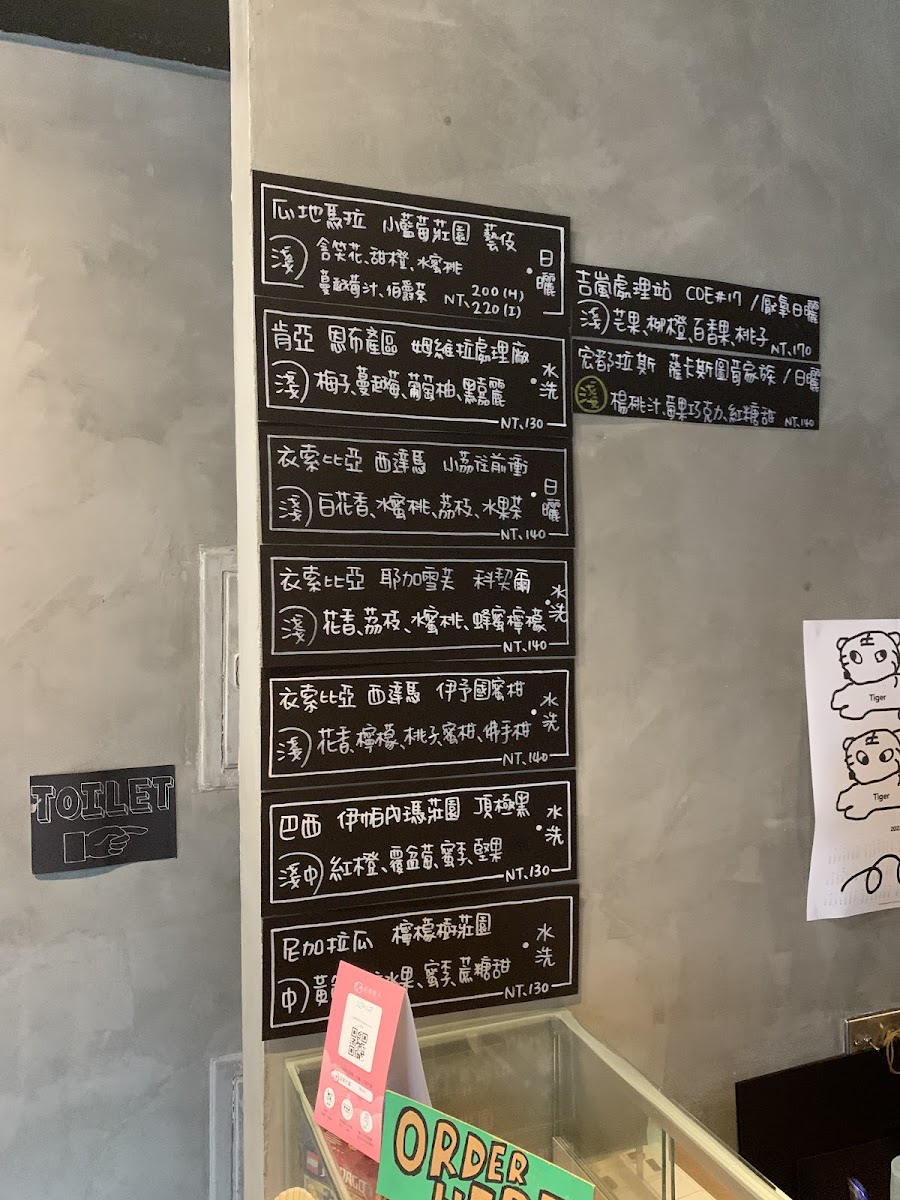 瓜地馬拉 小藍莓莊園 藝伎
淺 含笑花、甜橙、水蜜桃
蔓越莓汁、伯爵茶
NT、200(H)
220(I)
・日曬
肯亞 恩布產區 姆維拉處理廠
淺 梅子、蔓越莓、葡萄柚、黑嘉麗
・水洗
NT、130
衣索比亞 西達馬 小荔往前衝
淺 白花香、水蜜桃、荔枝、水果茶
・日曬
NT、140
衣索比亞 耶加雪芙 科契爾
淺 花香、荔枝、水蜜桃、蜂蜜檸檬
・水洗
NT、140
衣索比亞 西達馬 伊予國蜜柑
淺 花香、檸檬、桃子、蜜柑、佛手柑
・水洗
NT、140
巴西 伊帕內瑪莊園 頂極黑
淺中 紅橙、覆盆莓、蜜李、堅果
・水洗
NT、130
尼加拉瓜 檸檬樹莊園
中 黃 水果、蜜李、蔗糖甜
・水洗
NT、130
吉嵐處理站 COE#17 /厭氧日曬
淺 芒果、柳橙、百香果、桃子
NT、170
宏都拉斯 薩卡斯圖爾家族 /日曬
淺 楊桃汁、莓果巧克力、紅糖甜
NT、140
TOILET
Tiger
Tiger
ORDER
HERE